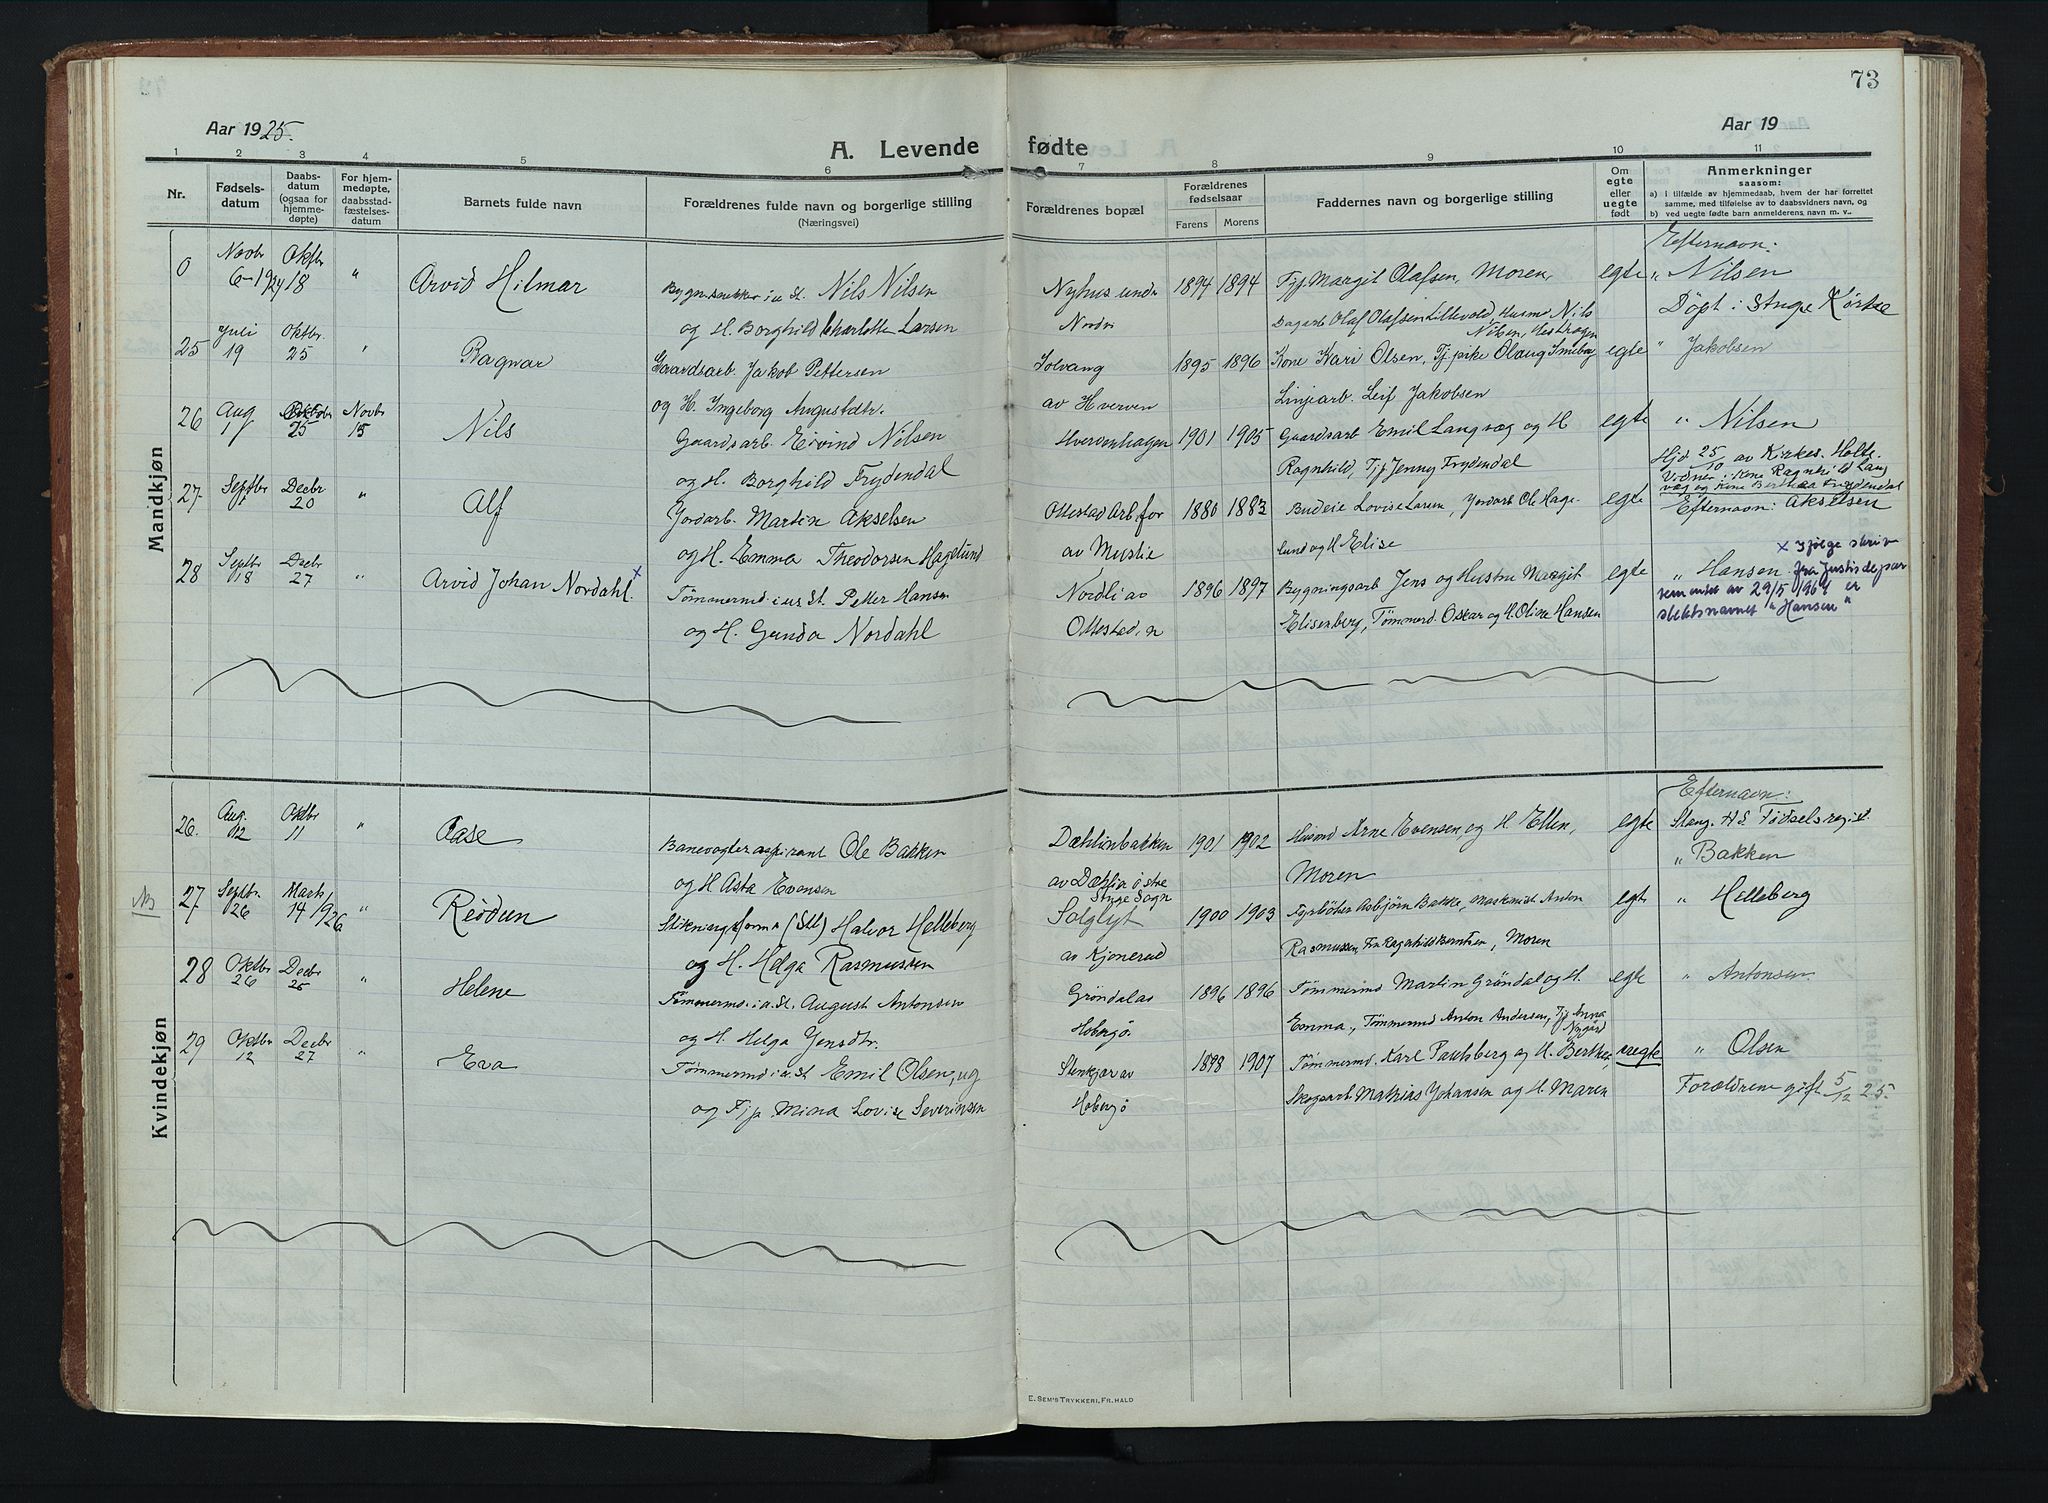 73
Aar 1925.
A. Levende fødte
Aar 19
1 2 3 4 5 6 7 8 9 10 11
Nr.
Fødsels-
datum
Daabs-
datum
(ogsaa for
hjemme-
døpte)
For hjem-
medøpte,
daabsstad-
fæstelses-
datum
Barnets fulde navn
Forældrenes fulde navn og borgerlige stilling
(Næringsvei)
Forældrenes bopæl
Forældrenes
fødselsaar
Farens Morens
Faddernes navn og borgerlige stilling
Om
egte
eller
uegte
født
Anmerkninger
saasom:
a) i tilfælde av hjemmedaab, hvem der har forrettet
samme, med tilføielse av to daabsvidners navn, og
b) ved uegte fødte barn anmelderens navn m. v..
Mandkjøn
Efternavn:
0 Novbr 6-1924 Oktbr 18 " Arvid Hilmar Nils Nilsen Nyhus under 1894 1894 Tjp. Margit Olafsen, Moren, egte " Nilsen
og H. Borghild Charlotte Larsen Nordre Dagarb Olaf Olafsen Lillevold, Husm Nils
Nilsen, Hestnagen
Døpt i Stange Kirke
25 Juli 19 Oktbr. 25 " Ragnar Gaardsarb. Jakob Pettersen Solvang 1895 1896 Kone Kari Olsen, Tjpike Olaug egte " Jakobsen
og H. Ingeborg Augustdtr. av Hverven Linjearb. Leif Jakobsen
26 Aug 1 Oktobr 25 Novbr 15 Nils Gaardsarb. Eivind Nilsen Hvervenhagen 1901 1905 Gaardsarb Emil Langvæg og H egte " Nilsen
og H. Borghild Frydendal Ragnhild, Tjp Jenny Frydendal
Hjd 25/10 av Kirkes. Holte.
Vidner: Kone Ragnhild Lang
væg og Kone Berthea Frydendal
27. Septbr Decbr 20 " Alf Jordarb. Martin Akselsen Ottestad Arb.for 1880 1883 Budeie Lovise Larsen, Jordarb Ole Hage- egte Efternavn: Akselsen
og H. Emma Theodorsen Hagelund av Mustie lund og H Elise
28 Septbr 18 Decbr 27 " Arvid Johan Nordahl.x Tømmermd. i u St. Petter Hansen Nordli av 1896 1897 Bygningsarb Jens og Hustru Margit egte " Hansen
og H. Gunda Nordahl Ottestad, n Elisenberg, Tømmermd. Oskar og H. Oline Hansen
x Ifølge skriv
fra Justisdepar
tementet av 29/5 1964 er
slektsnavnet "Hansen"
Kvindekjøn
Efternavn:
26. Aug. 12 Oktbr 11 " Aase Banevogteraspirant Ole Bakken Dæhlinbakken 1901 1902 Husmd Arne Evensen, og H. Ellen, egte Stang. H.S. Fødselsregist.
og H Asta Evensen av Dæhlin østre Moren " Bakken
Stange Sogn
NB 27 Septbr. 26 Marts 14 1926 " Reidun (Stb) Halvor Helleberg Solglyt 1900 1903 Fyrbøter Asbjørn Bakke, Maskinist Anton egte " Helleberg
og H. Helga Rasmussen av Kjonerud Rasmussen, Fr Ragnhild Berntsen, Moren
28 Oktbr 26 Decbr 25 " Helene Tømmermd. i u. St. August Antonsen Grøndal av 1896 1896 Tømmermd Martin Grøndal og H. egte " Antonsen
og H. Helga Jensdtr. Hobergø. Emma, Tømmermd Anton Andersen, Tjp Anna
Nygård
29 Oktbr 12 Decbr 27 " Eva Tømmermd i u. St Emil Olsen, ug Stenkjær av 1898 1907 Tømmermd. Karl Paulsberg og H. Berthe, uegte " Olsen
og Tjp. Mina Lovise Severinsen Hobergø Skogsarb Mathias Johansen og H Maren Forældrene gift 5/12 25.
E. SEM'S TRYKKERI, FR. HALD